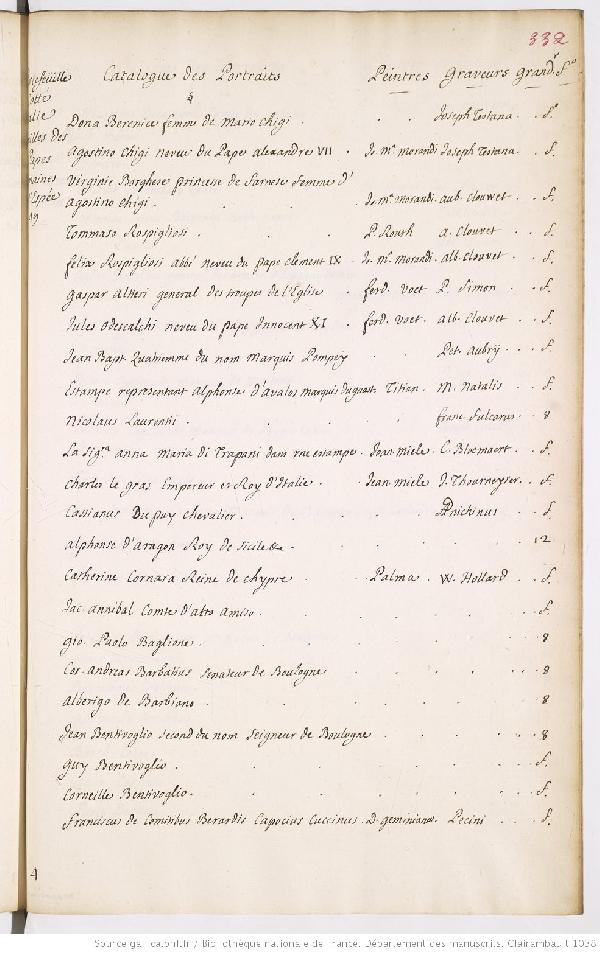 332
Catalogue des Portraits Peintres Graveurs grand.r f.o
Dona Berenice femme de Mario Chigi . . . Joseph Testana . . f.
Agostino Chigi neveu du Pape alexandre VII . J. m. morandi Joseph Testana . . f.
Virginie Borghese princesse de farnese femme d'
Agostino Chigi . . J. m. Morandi . aub. Clouwet . . f.
Tommaso Rospigliosi . . . P. Routh a. Clouvet . . f.
felix Rospigliosi abbé neveu du pape Clement IX . J. m. morandi . alb. Clouvet . . f.
Gaspar Altieri general des troupes de l'Eglise ferd. Voet P. Simon . . f.
Jules Odescalchi neveu du pape Innocent XI . ferd. Voet . alb. Clouvet . . f.
Jean Bapt. du nom Marquis Pompey . . Pet. Aubry . . f.
Estampe representant alphonse d'avalos marquis du guast . Titian . M. Natalis . . f.
Nicolaus Laurenti . . . franc. fulcarus . 8
La Sig.ra anna Maria di Trapani dans une estampe . Jean miele . C. Bloemaert . . f.
Charles le gras Empereur et Roy d'Italie . Jean miele J. Thourneyser . . f.
Cassianus Du puy chevalier . . . f.
alphonse d'aragon Roy de sicile &c . . . 12
Catherine Cornara Reine de chypre . Palma . W. Hollard . . f.
Jac. annibal Comte d'alta amiso . . . f.
Gio. Paolo Baglione . . . 8
Cor. andreas Barbatius senateur de Boulogne . . . 8
alberigo de Barbiano . . . 8
Jean Bentivoglio second du nom Seigneur de Boulogne . . . 8
Guy Bentivoglio . . . f.
Corneille Bentivoglio . . . f.
Franciscus de Comitibus Berardis Capocius Cuccinus . D. geminianus . Pecini . . . f.
Source gallica.bnf.fr / Bibliothèque nationale de France. Département des manuscrits. Clairambault 1038